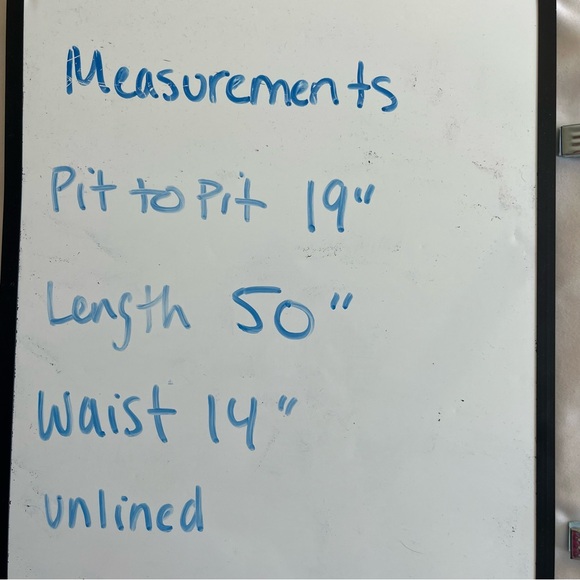 Measurements
Pit to Pit 19"
Length 50"
Waist 14"
unlined